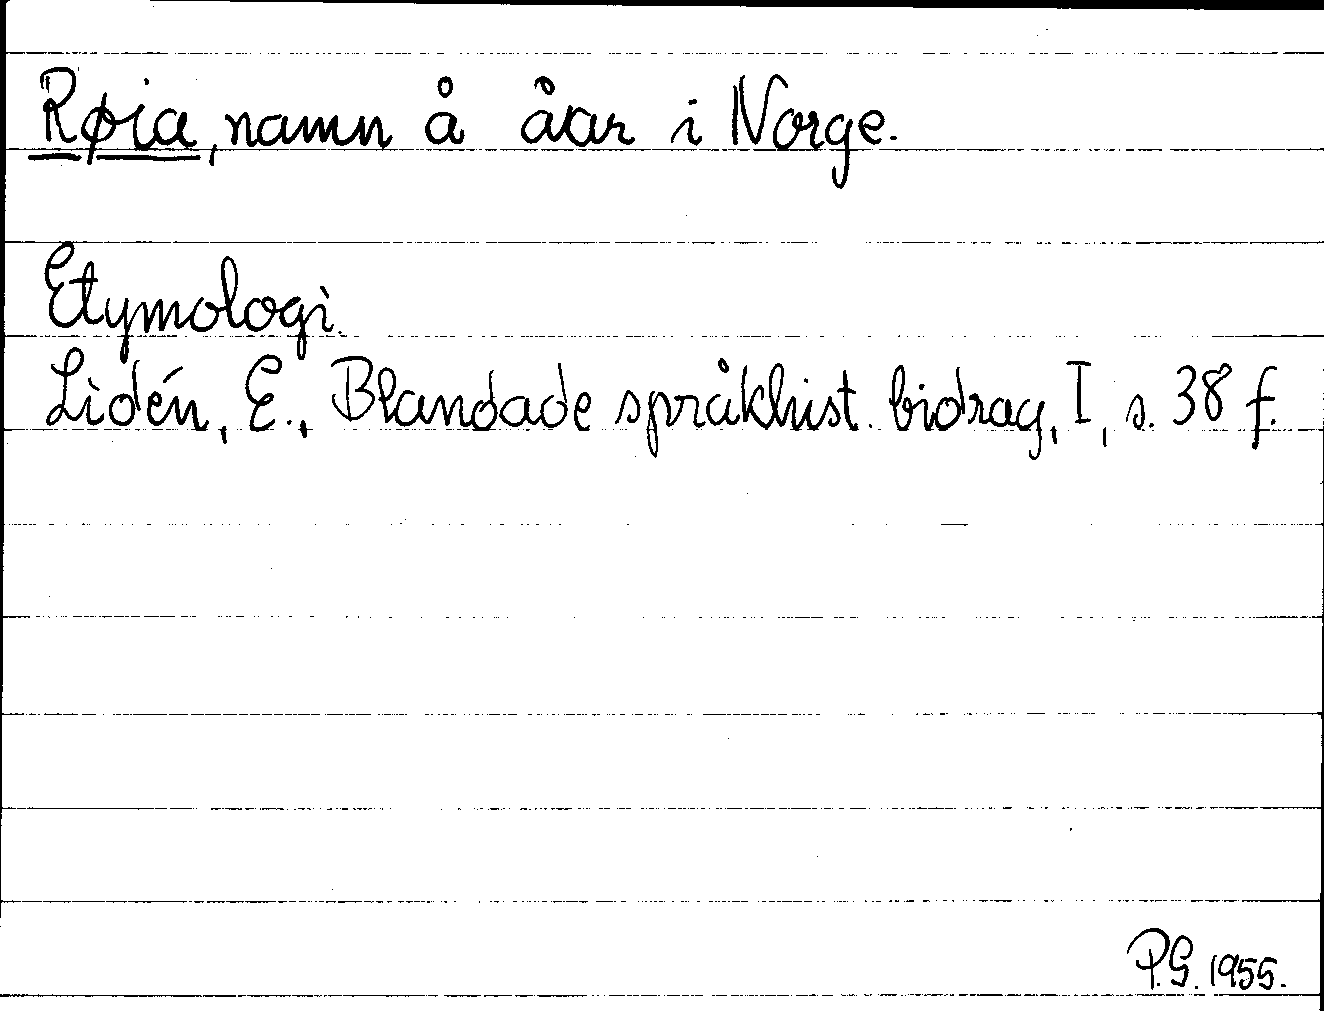 Røia, namn å åar i Norge.
Etymologi.
Lidén, E., Blandade språkhist. bidrag, I, s. 38 f.
P.G. 1955.